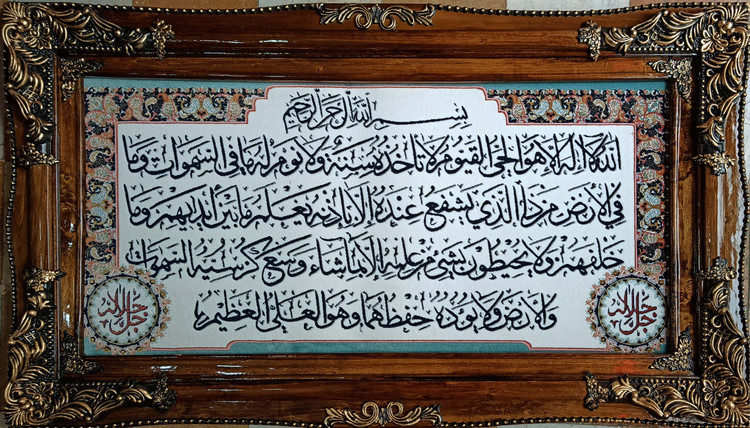 بسم الله الرحمن الرحيم
الله لا إله إلا هو الحي القيوم لا تأخذه سنة ولا نوم له ما في السموات وما
في الأرض من ذا الذي يشفع عنده إلا بإذنه يعلم ما بين أيديهم وما
خلفهم ولا يحيطون بشيء من علمه إلا بما شاء وسع كرسيه السموات
والأرض ولا يؤوده حفظهما وهو العلي العظيم
جل جلاله
جل جلاله